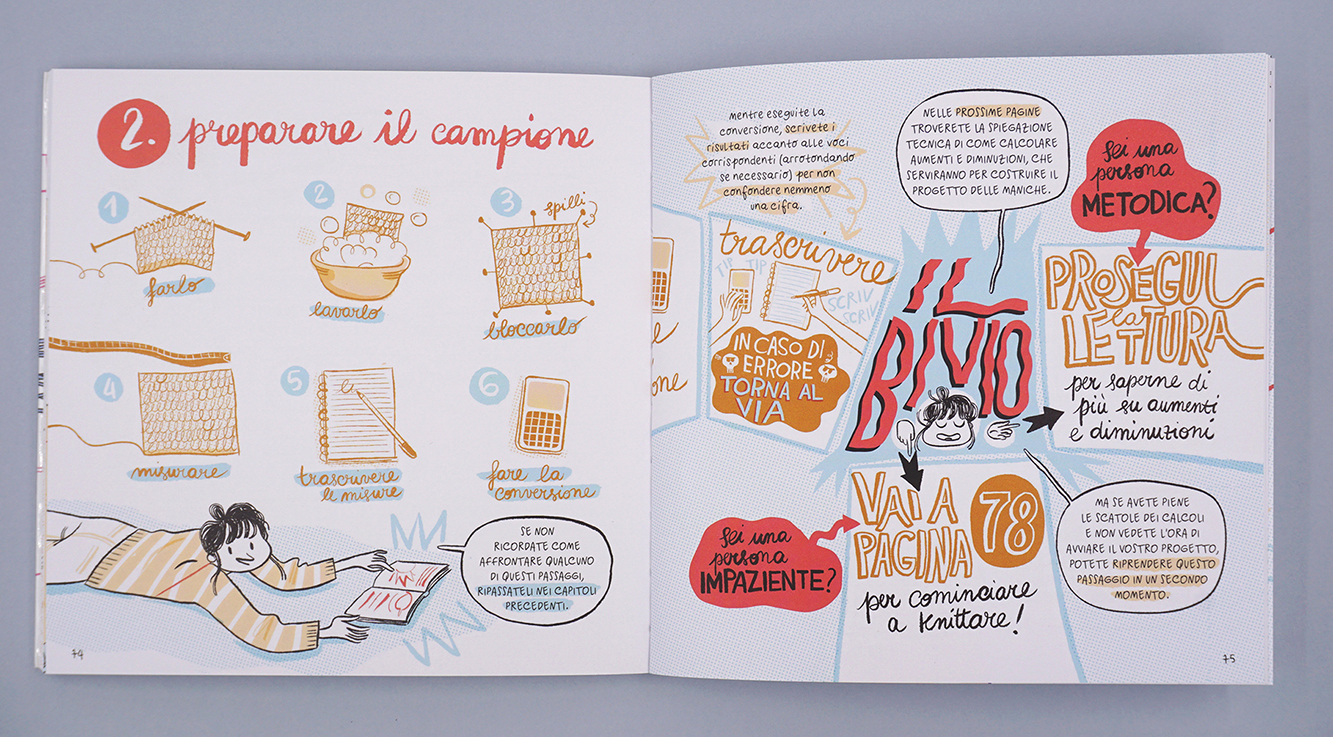 2. preparare il campione
1
farlo
2
lavarlo
3
spilli
bloccarlo
4
misurare
5
trascrivere
le misure
6
fare la
conversione
SE NON
RICORDATE COME
AFFRONTARE QUALCUNO
DI QUESTI PASSAGGI,
RIPASSATELI NEI CAPITOLI
PRECEDENTI.
74
mentre eseguite la
conversione, scrivete i
risultati accanto alle voci
corrispondenti (arrotondando
se necessario) per non
confondere nemmeno
una cifra.
trascrivere
TIP TIP
SCRIV
SCRIV
IN CASO DI
ERRORE
TORNA AL
VIA
one
NELLE PROSSIME PAGINE
TROVERETE LA SPIEGAZIONE
TECNICA DI COME CALCOLARE
AUMENTI E DIMINUZIONI, CHE
SERVIRANNO PER COSTRUIRE IL
PROGETTO DELLE MANICHE.
IL
BIVIO
Sei una
persona
METODICA?
PROSEGUI
la
LETTURA
per saperne di
più su aumenti
e diminuzioni
Sei una
persona
IMPAZIENTE?
VAI A
PAGINA
78
per cominciare
a knittare!
MA SE AVETE PIENE
LE SCATOLE DEI CALCOLI
E NON VEDETE L'ORA DI
AVVIARE IL VOSTRO PROGETTO,
POTETE RIPRENDERE QUESTO
PASSAGGIO IN UN SECONDO
MOMENTO.
75